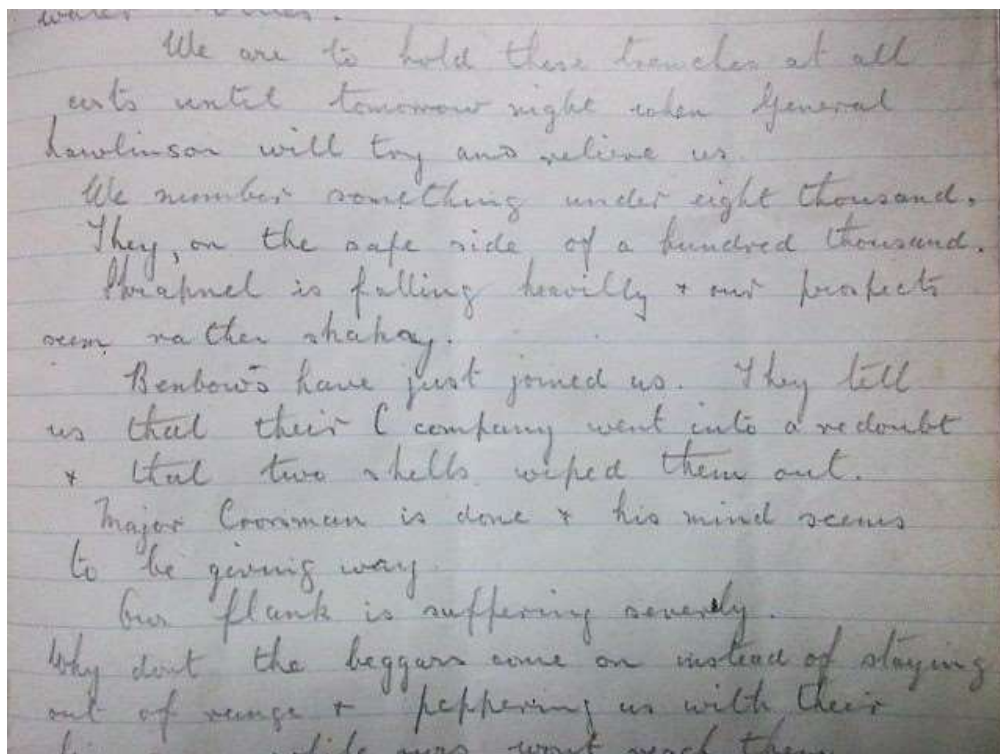 We are to hold these trenches at all
costs until tomorrow night when General
Rawlinson will try and relieve us.
We number something under eight thousand.
They, on the safe side of a hundred thousand.
Shrapnel is falling heavilly + our prospects
seem rather shakay.
Benbows have just joined us. They tell
us that their C company went into a redoubt
+ that two shells wiped them out.
Major Crossman is done + his mind seems
to be giving way.
Our flank is suffering severely.
Why dont the beggars come on instead of staying
out of range + peppering us with their
while ours wont reach them